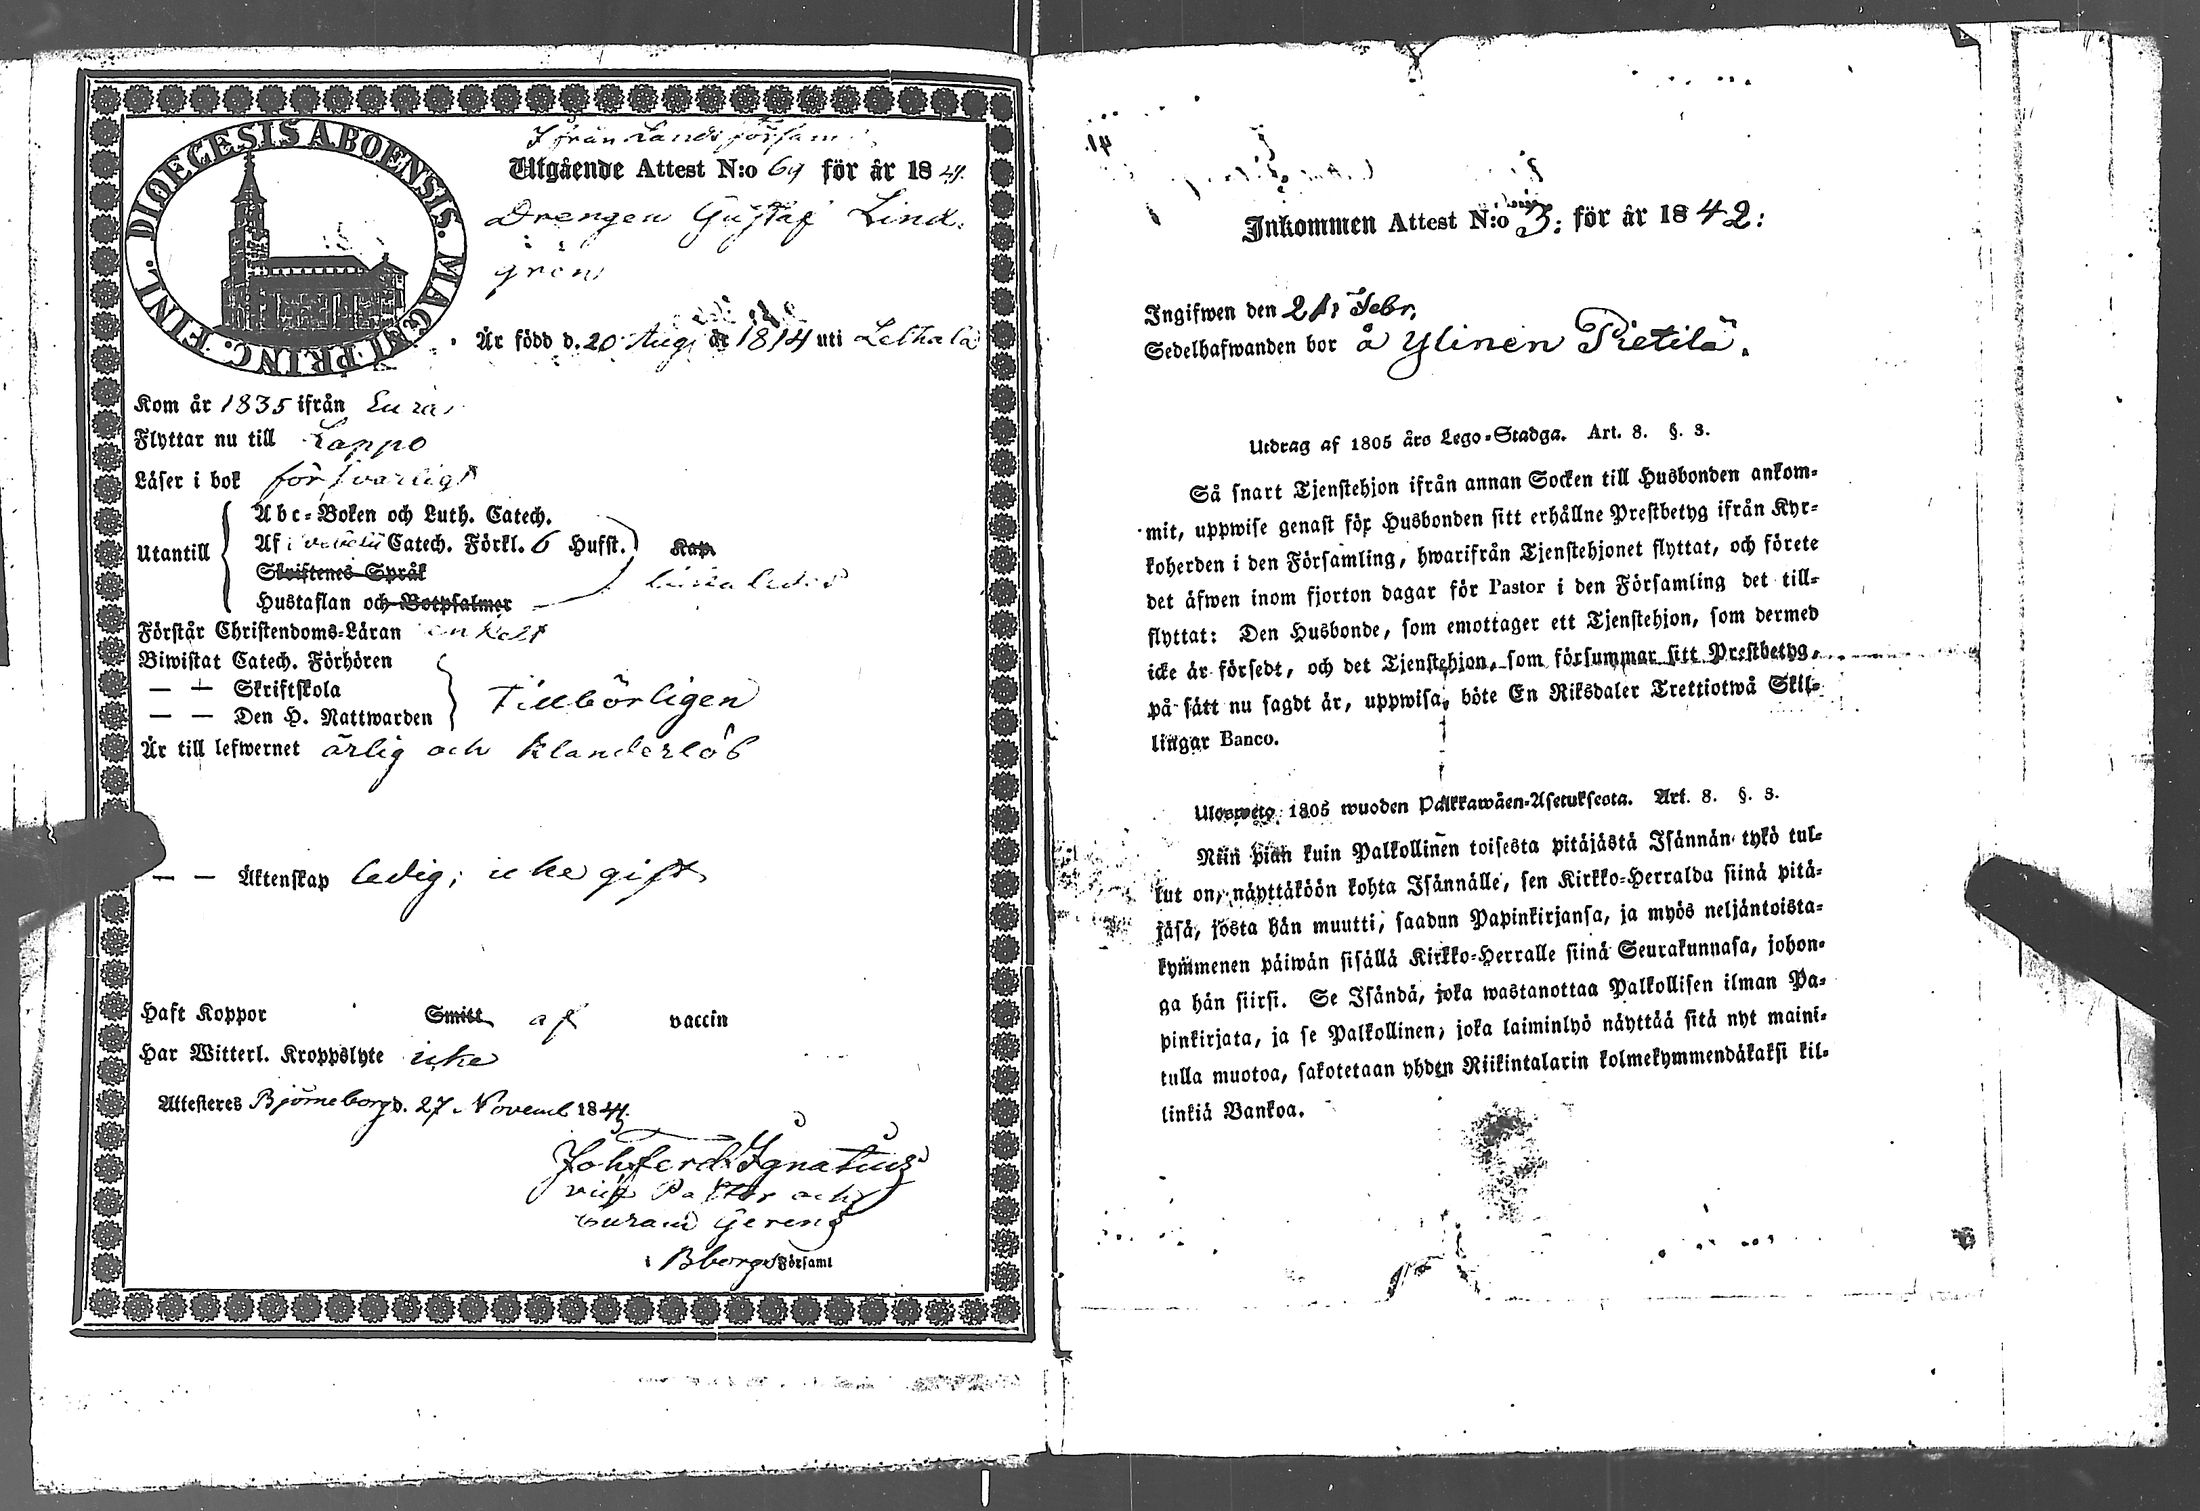 DIOECESIS ABOENSIS. MAGNI PRINC. FINL.
Ifrån Lands försam
Utgående Attest N:o 69 för år 1841.
Drengen Gustaf Lind-
grén
Är född d. 20 Aug. år 1814 uti Lethala
Kom år 1835 ifrån Eura
Flyttar nu till Lappo
Läser i bok försvarligt
Utantill
Abc-Boken och Luth. Catech.
Af Catech. Förkl. 6 Hufst. Kap.
Skriftenes Språk
Hustaflan och Botpsalmer
Förstår Christendoms-Läran enkelt
Biwistat Catech. Förhören
— — Skriftskola
— — Den H. Nattwarden
Tillbörligen
Är till lefwernet ärlig och klanderlös
— — Äktenskap ledig, icke gift
Haft Koppor Smitt af vaccin
Har Witterl. Kroppslyte icke
Attesteres Björneborg d. 27 Novemb 1841.
Joh Ferd Ignatius
vice Pastor och
Curam Gerens
i Bborgs Församl
Inkommen Attest N:o 3: för år 1842:
Ingifwen den 21 Febr.
Sedelhafwanden bor å Ylinen Pietilä.
Utdrag af 1805 års Lego-Stadga. Art. 8. §. 3.
Så snart Tjenstehjon ifrån annan Socken till Husbonden ankom-
mit, uppwise genast för Husbonden sitt erhållne Prestbetyg ifrån Kyr-
koherden i den Församling, hwarifrån Tjenstehjonet flyttat, och förete
det äfwen inom fjorton dagar för Pastor i den Församling det till-
flyttat: Den Husbonde, som emottager ett Tjenstehjon, som dermed
icke är försedt, och det Tjenstehjon, som försummar sitt Prestbetyg,
på sätt nu sagdt är, uppwisa, böte En Riksdaler Trettiotwå Skil-
lingar Banco.
Ulosweto 1805 wuoden Palkkawäen-Asetuksesta. Art. 8. §. 3.
Niin pian kuin Palkollinen toisesta pitäjästä Isännän tykö tul-
lut on, näyttäköön kohta Isännälle, sen Kirkko-Herralda siinä pitä-
jäsä, josta hän muutti, saadun Papinkirjansa, ja myös neljäntoista-
kymmenen päiwän sisällä Kirkko-Herralle siinä Seurakunnasa, johon-
ga hän siirsi. Se Isändä, joka wastanottaa Palkollisen ilman Pa-
pinkirjata, ja se Palkollinen, joka laiminlyö näyttää sitä nyt maini-
tulla muotoa, sakotetaan yhden Riikintalarin kolmekymmendäkaksi kil-
linkiä Bankoa.